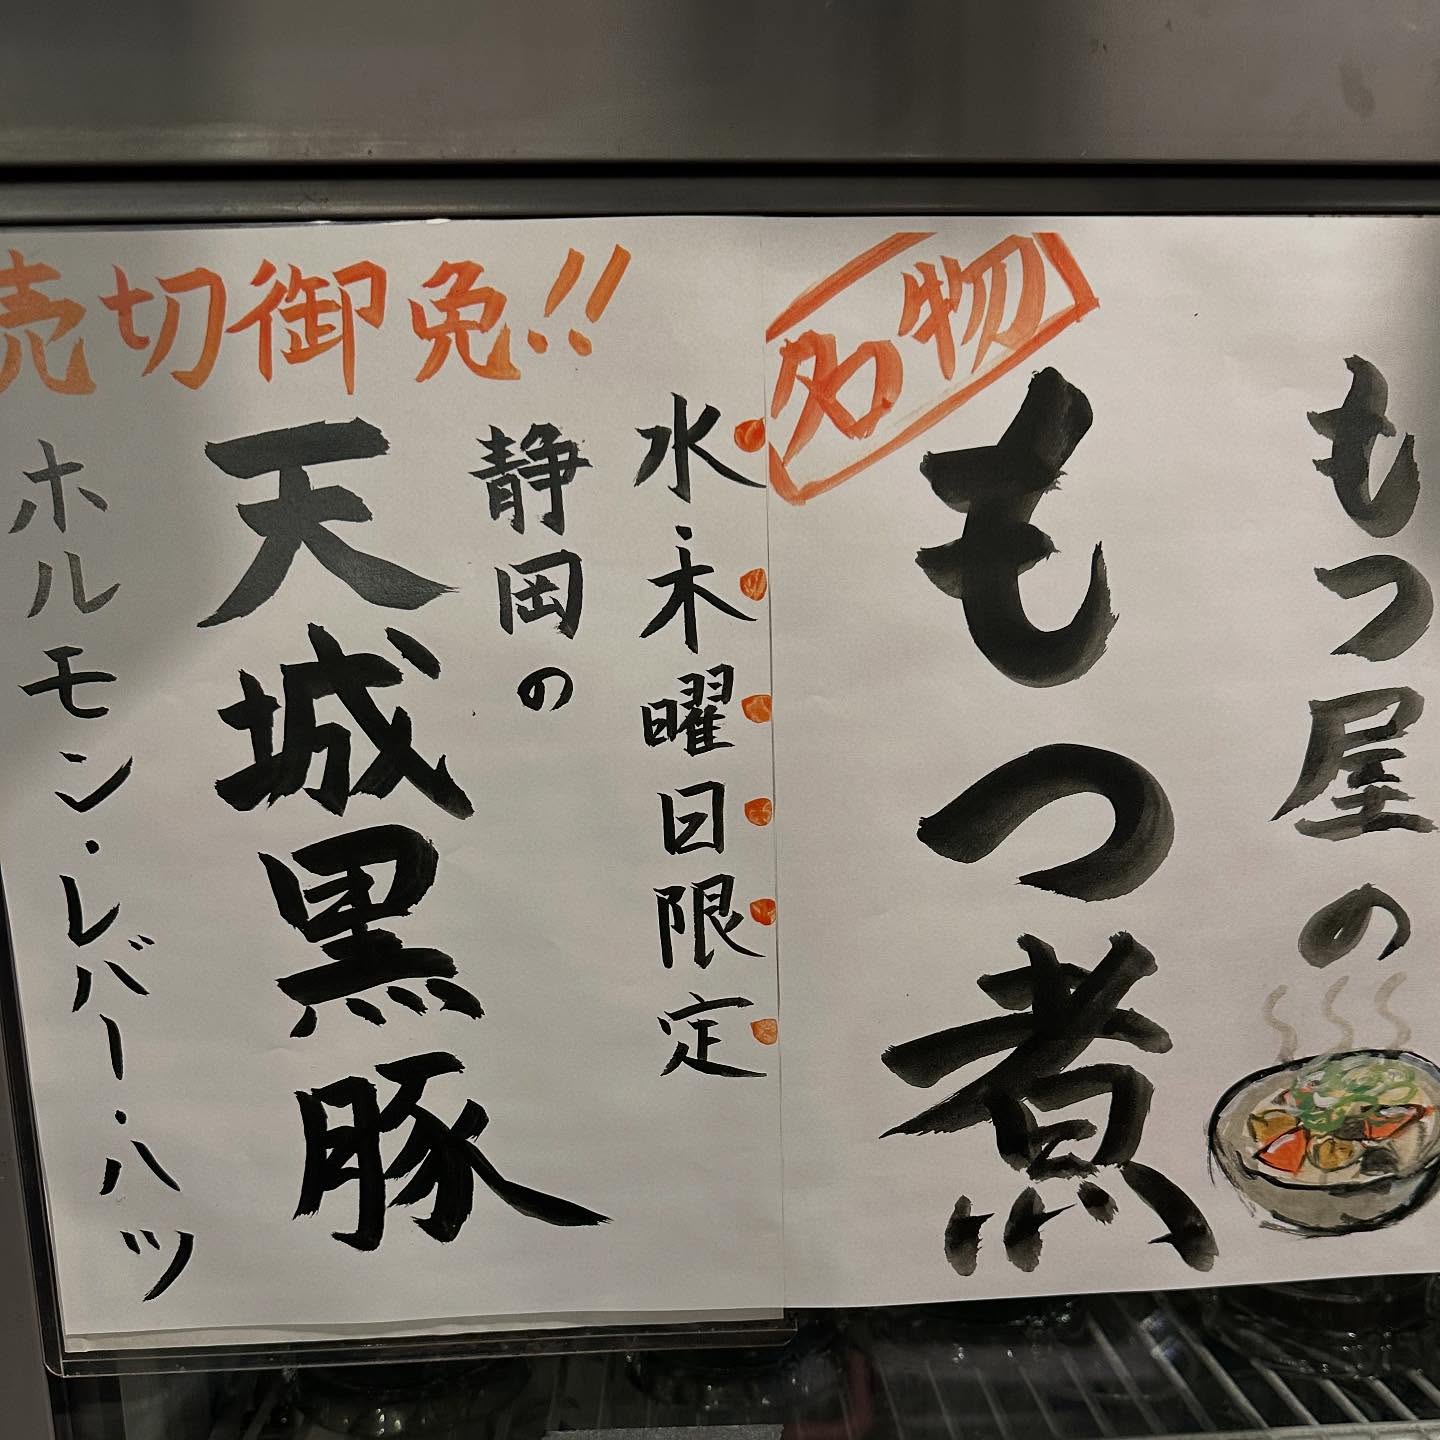 もつ屋の
名物
もつ煮
水・木曜日限定
静岡の
天城黒豚
ホルモン・レバー・ハツ
売切御免!!